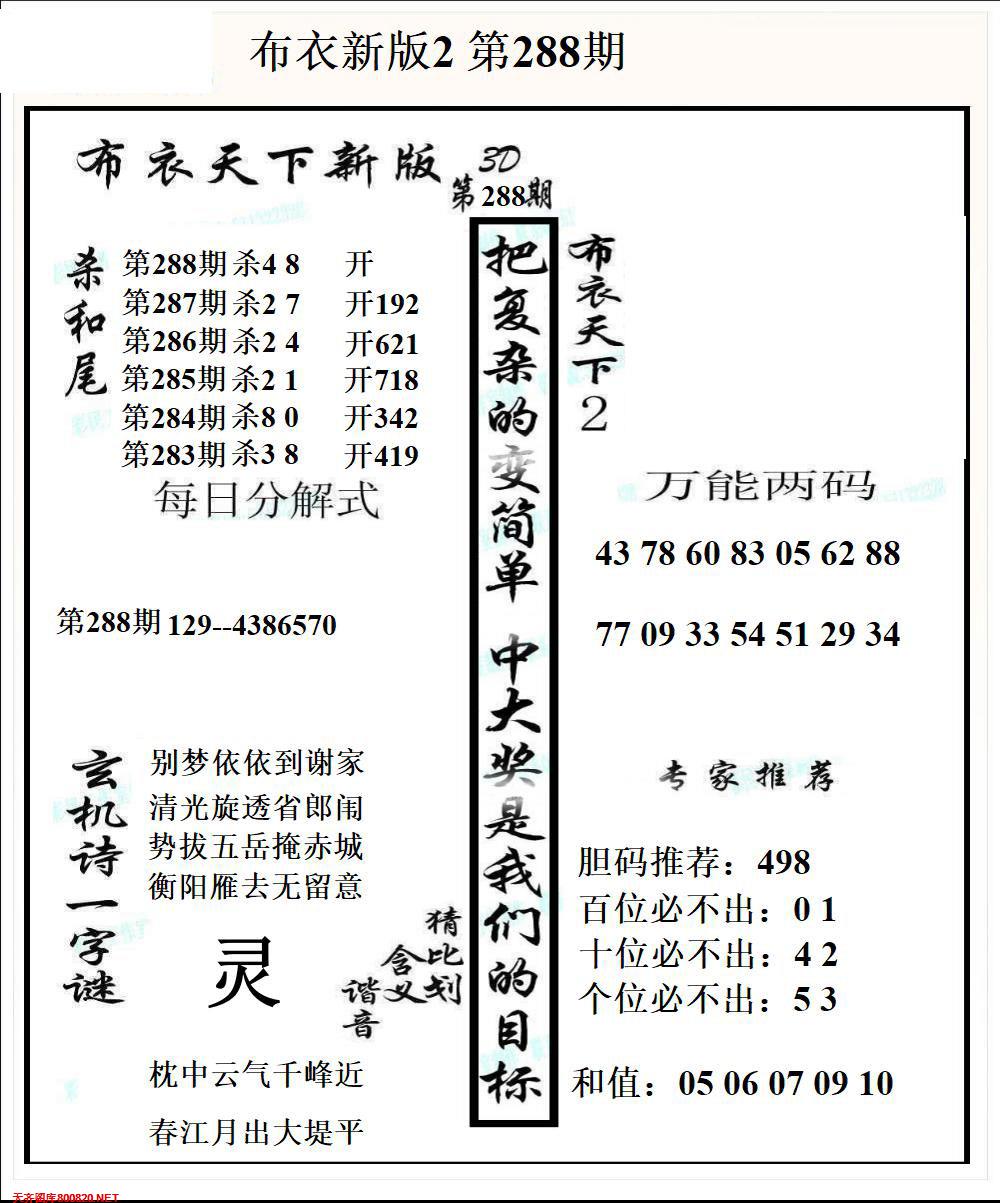 布衣新版2 第288期
布衣天下新版 3D
第288期
杀和尾
第288期 杀4 8 开
第287期 杀2 7 开192
第286期 杀2 4 开621
第285期 杀2 1 开718
第284期 杀8 0 开342
第283期 杀3 8 开419
每日分解式
第288期 129--4386570
玄机诗一字谜
别梦依依到谢家
清光旋透省郎闱
势拔五岳掩赤城
衡阳雁去无留意
灵
猜比划
含义
谐音
枕中云气千峰近
春江月出大堤平
把复杂的变简单 中大奖是我们的目标
布衣天下2
万能两码
43 78 60 83 05 62 88
77 09 33 54 51 29 34
专家推荐
胆码推荐：498
百位必不出：0 1
十位必不出：4 2
个位必不出：5 3
和值：05 06 07 09 10
天齐图库800820.NET